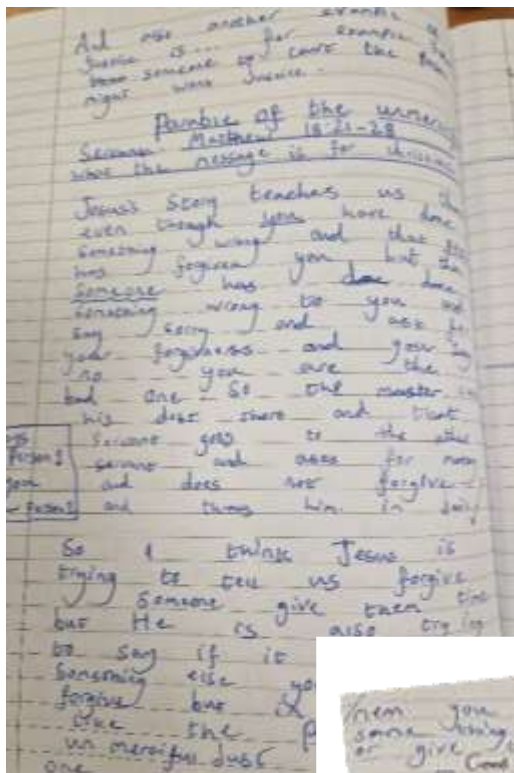 And also another example of
Justice is.... for example
someone to court the
might want Justice.
Parable of the unmerci
Servant Matthew 18:21-28
what the message is for christians
Jesus's Story teaches us that
even though you have done
something wrong and that
has forgiven you but then
Someone has done
something wrong to you and
Say sorry and ask for
your forgivness and you say
no you are the
bad one. So the master
his debt there and that
Servant goes to the other
servant and asks for
and does not forgive
and throws him in jail
Person 1
you
Person 2
So I think Jesus is
trying to tell us forgive
someone give them time
but He is also trying
to say if it
Something else yo
forgive but
like the
un merciful
one
them you
same thing
or give
Good